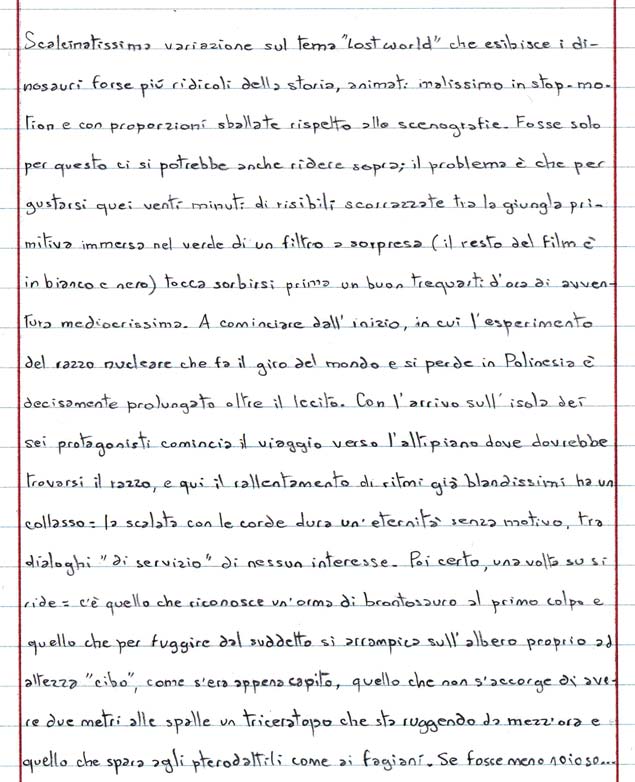 Scalcinatissima variazione sul tema "Lost world" che esibisce i di-
nosauri forse più ridicoli della storia, animati malissimo in stop-mo-
tion e con proporzioni sballate rispetto alle scenografie. Fosse solo
per questo ci si potrebbe anche ridere sopra; il problema è che per
gustarsi quei venti minuti di risibili scorrazzate tra la giungla pri-
mitiva immersa nel verde di un filtro a sorpresa (il resto del film è
in bianco e nero) tocca sorbirsi prima un buon trequarti d'ora di avven-
tura mediocrissima. A cominciare dall'inizio, in cui l'esperimento
del razzo nucleare che fa il giro del mondo e si perde in Polinesia è
decisamente prolungato oltre il lecito. Con l'arrivo sull'isola dei
sei protagonisti comincia il viaggio verso l'altipiano dove dovrebbe
trovarsi il razzo, e qui il rallentamento di ritmi già blandissimi ha un
collasso: la scalata con le corde dura un'eternità senza motivo, tra
dialoghi "di servizio" di nessun interesse. Poi certo, una volta su si
ride: c'è quello che riconosce un'orma di brontosauro al primo colpo e
quello che per fuggire dal suddetto si arrampica sull'albero proprio ad
altezza "cibo", come s'era appena capito, quello che non s'accorge di ave-
re due metri alle spalle un triceratopo che sta ruggendo da mezz'ora e
quello che spara agli pterodattili come ai fagiani. Se fosse meno noioso...